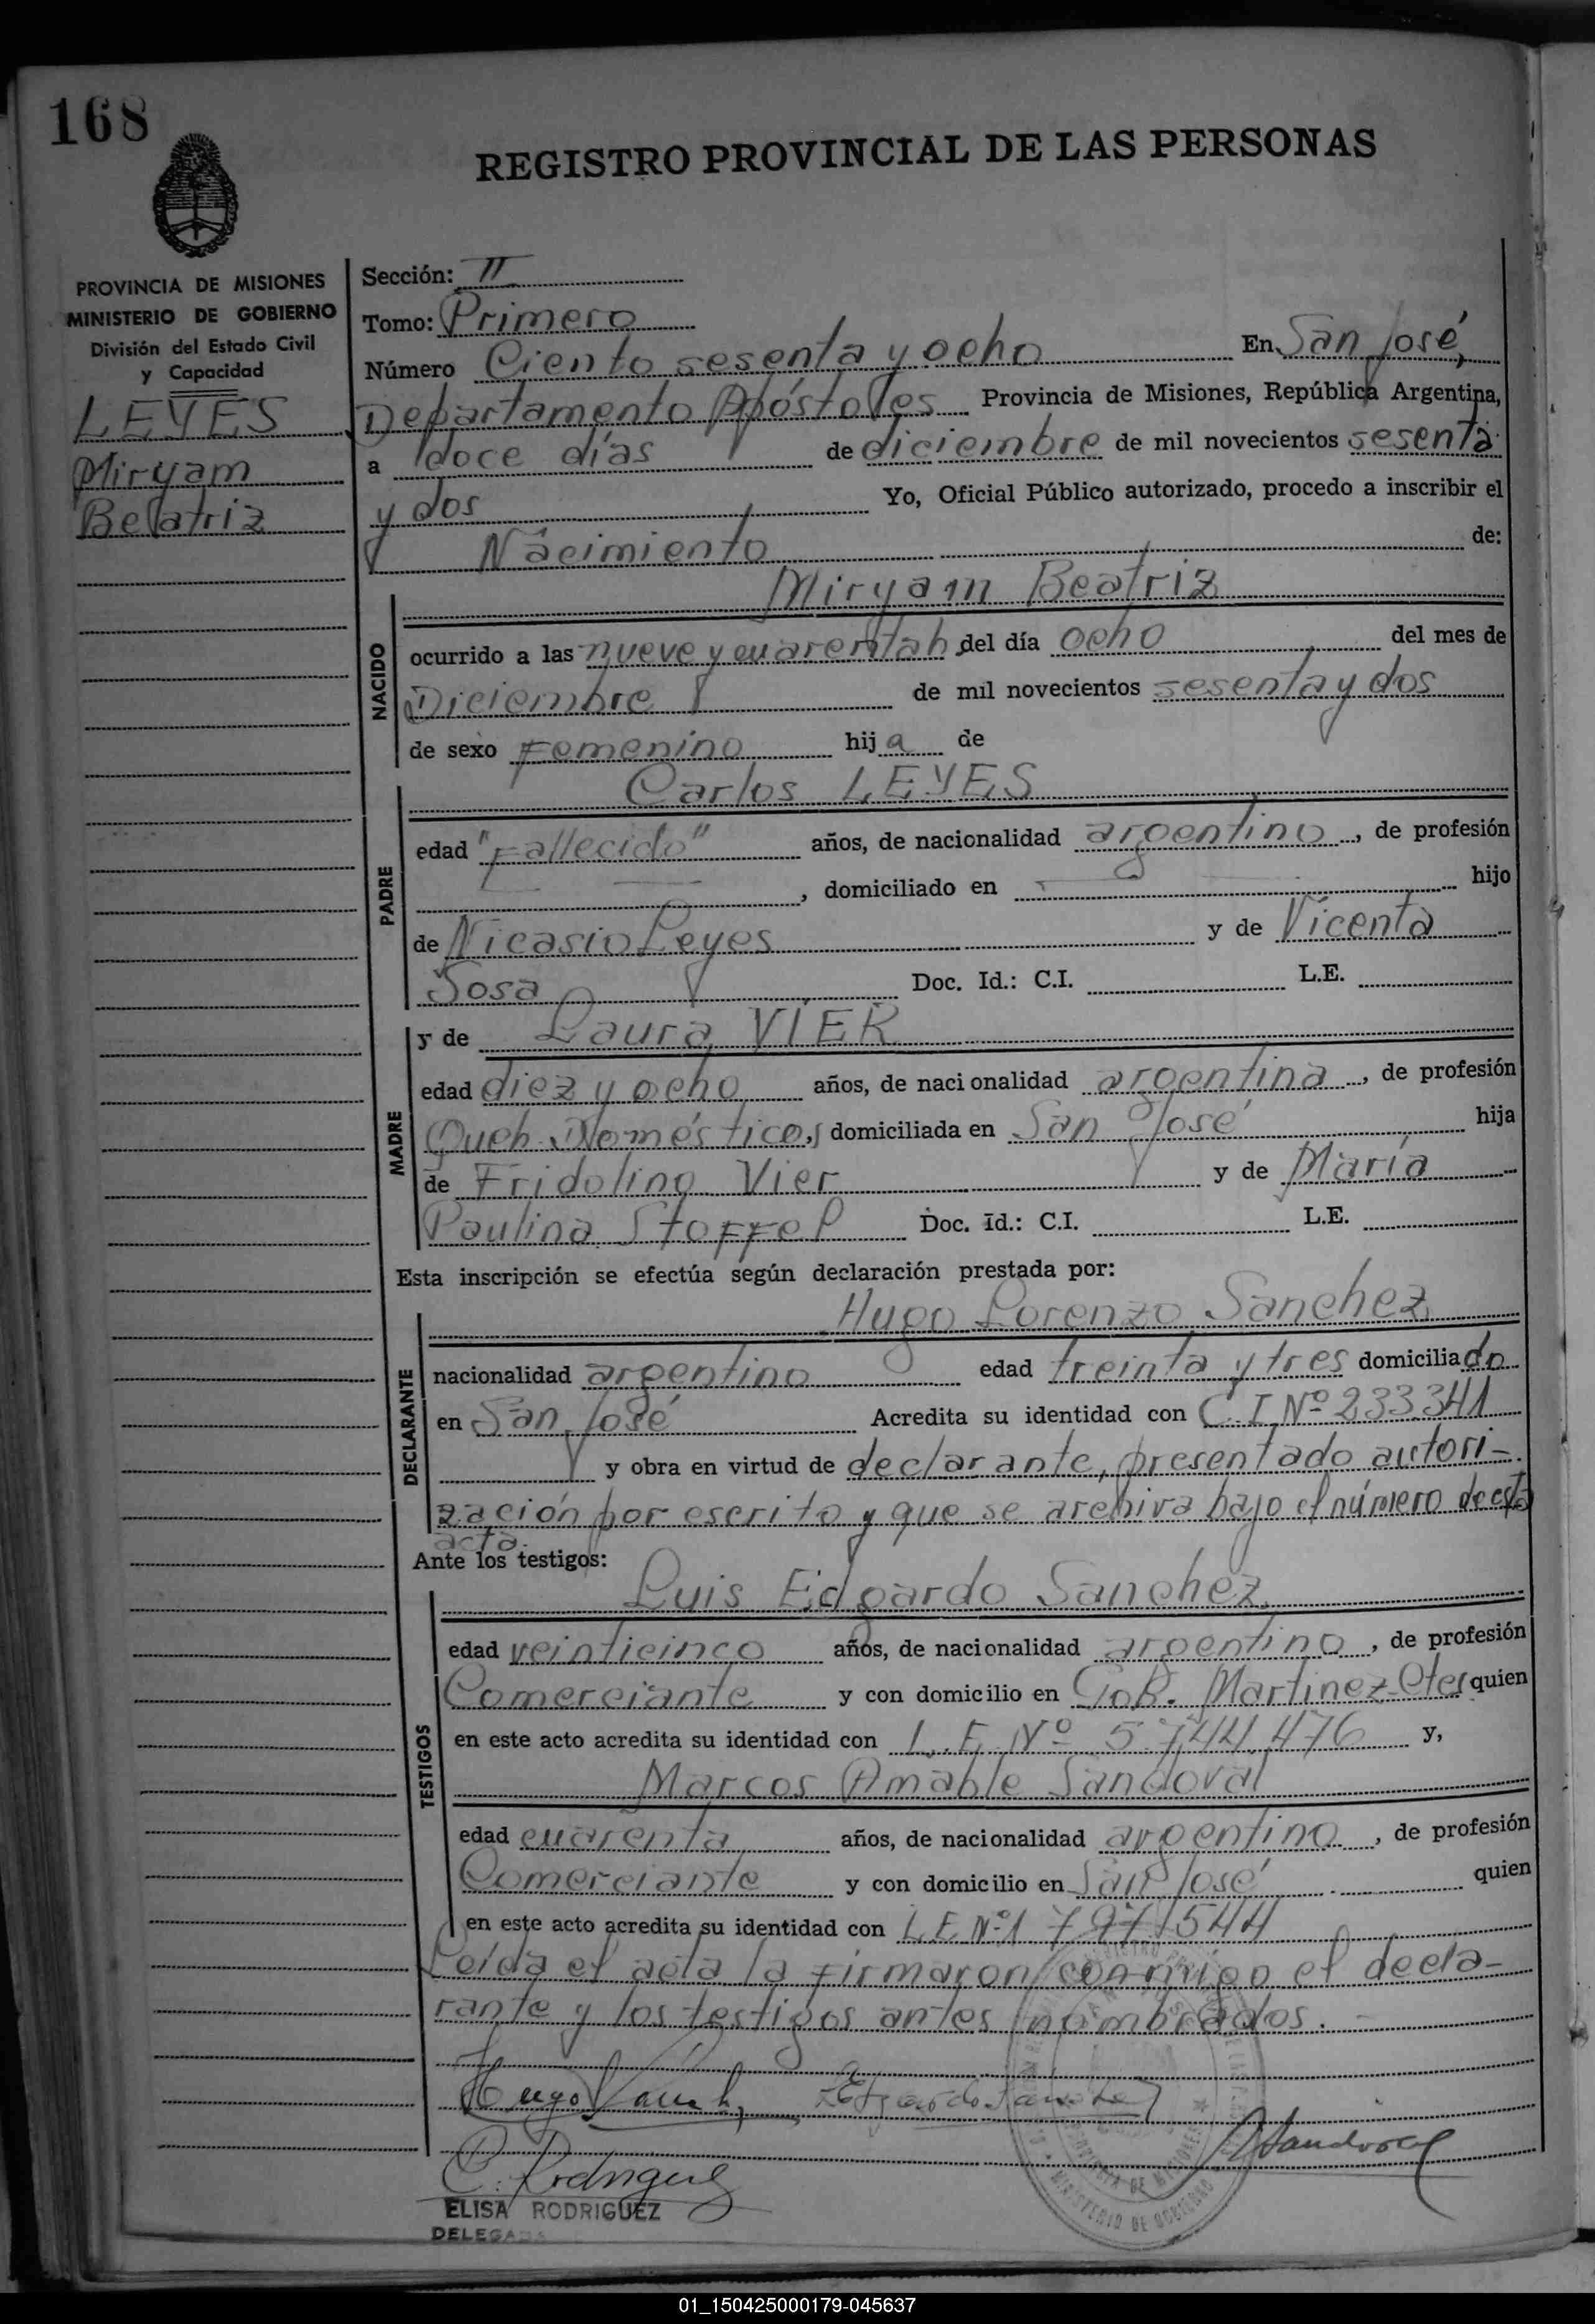 168
REGISTRO PROVINCIAL DE LAS PERSONAS
PROVINCIA DE MISIONES
MINISTERIO DE GOBIERNO
División del Estado Civil
y Capacidad
LEYES
Miryam
Beatriz
Sección: II
Tomo: Primero
Número Ciento sesenta y ocho En San José,
Departamento Apóstoles Provincia de Misiones, República Argentina,
a doce días de diciembre de mil novecientos sesenta
y dos Yo, Oficial Público autorizado, procedo a inscribir el
Nacimiento de:
NACIDO
Miryam Beatriz
ocurrido a las nueve y cuarenta h del día ocho del mes de
Diciembre de mil novecientos sesenta y dos
de sexo Femenino hij a de
PADRE
Carlos LEYES
edad "Fallecido" años, de nacionalidad argentino, de profesión
— —, domiciliado en — — hijo
de Nicasio Leyes y de Vicenta
Sosa Doc. Id.: C.I. L.E.
MADRE
y de Laura VIER
edad diez y ocho años, de nacionalidad argentina, de profesión
Queh. Domésticos, domiciliada en San José hija
de Fridolino Vier y de María
Paulina Stoffel Doc. Id.: C.I. L.E.
Esta inscripción se efectúa según declaración prestada por:
DECLARANTE
Hugo Lorenzo Sanchez
nacionalidad argentino edad treinta y tres domiciliado
en San José Acredita su identidad con C.I. Nº 233341
y obra en virtud de declarante, presentado autori-
zación por escrito y que se archiva bajo el número de esta
acta.
Ante los testigos:
TESTIGOS
Luis Edgardo Sanchez
edad veinticinco años, de nacionalidad argentino, de profesión
Comerciante y con domicilio en Gob. Martinez-Ctes quien
en este acto acredita su identidad con L.E. Nº 5.744.476 y,
Marcos Amable Sandoval
edad cuarenta años, de nacionalidad argentino, de profesión
Comerciante y con domicilio en San José quien
en este acto acredita su identidad con L E Nº 1 797 544
Leída el acta la firmaron conmigo el decla-
rante y los testigos antes nombrados.
Hugo Sanch
Edgardo Sanchez
Sandoval
E. Rodriguez
ELISA RODRIGUEZ
DELEGADA
MINISTERIO DE GOBIERNO
01_150425000179-045637